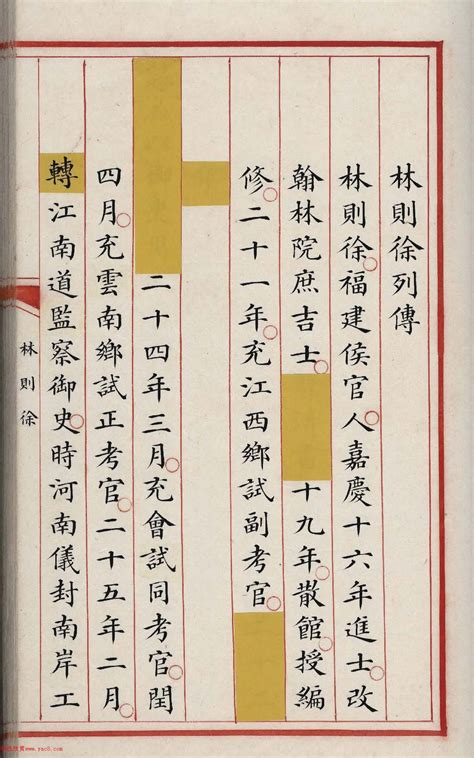 林則徐列傳
林則徐福建侯官人嘉慶十六年進士改
翰林院庶吉士十九年散館授編
修二十一年充江西鄉試副考官
二十四年三月充會試同考官閏
四月充雲南鄉試正考官二十五年二月
轉江南道監察御史時河南儀封南岸工
林則徐
www.yac8.com